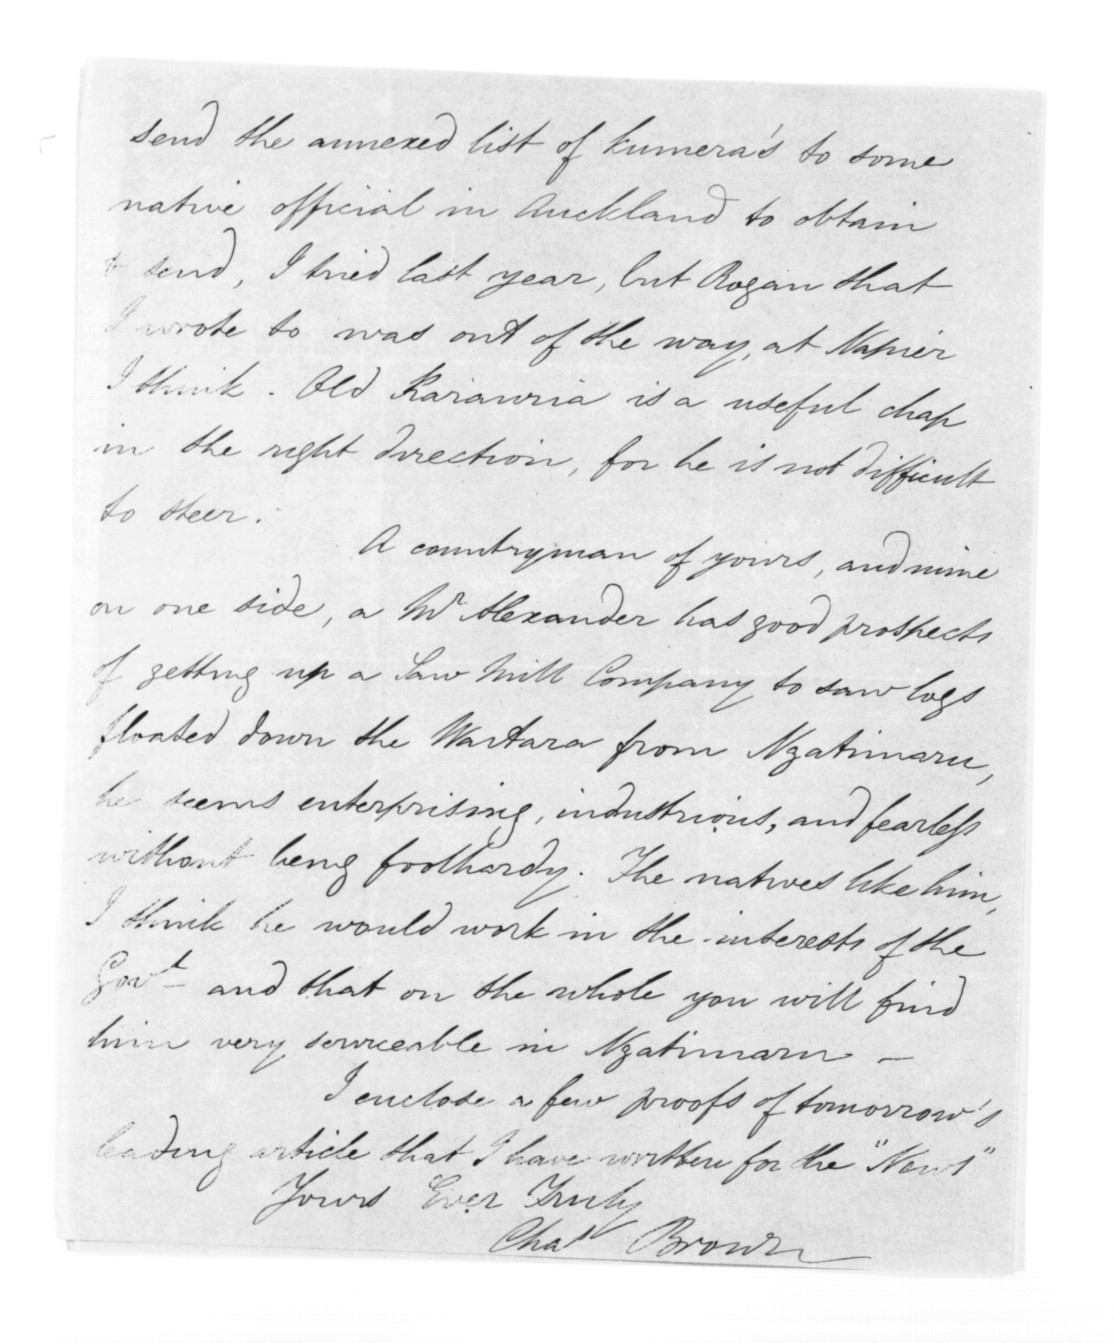 send the annexed list of kumera's to some
native official in Auckland to obtain
& send, I tried last year, but Rogan that
I wrote to was out of the way, at Napier
I think. Old Karauria is a useful chap
in the right direction, for he is not difficult
to steer.
A countryman of yours, and mine
on one side, a Mr Alexander has good prospects
of getting up a Saw Mill Company to saw logs
floated down the Waitara from Ngatimaru,
he seems enterprising, industrious, and fearless
without being foolhardy. The natives like him,
I think he would work in the interests of the
Govt - and that on the whole you will find
him very serviceable in Ngatimaru -
I enclose a few proofs of tomorrow's
leading article that I have written for the "News"
Yours Ever Truly
Chas Brown